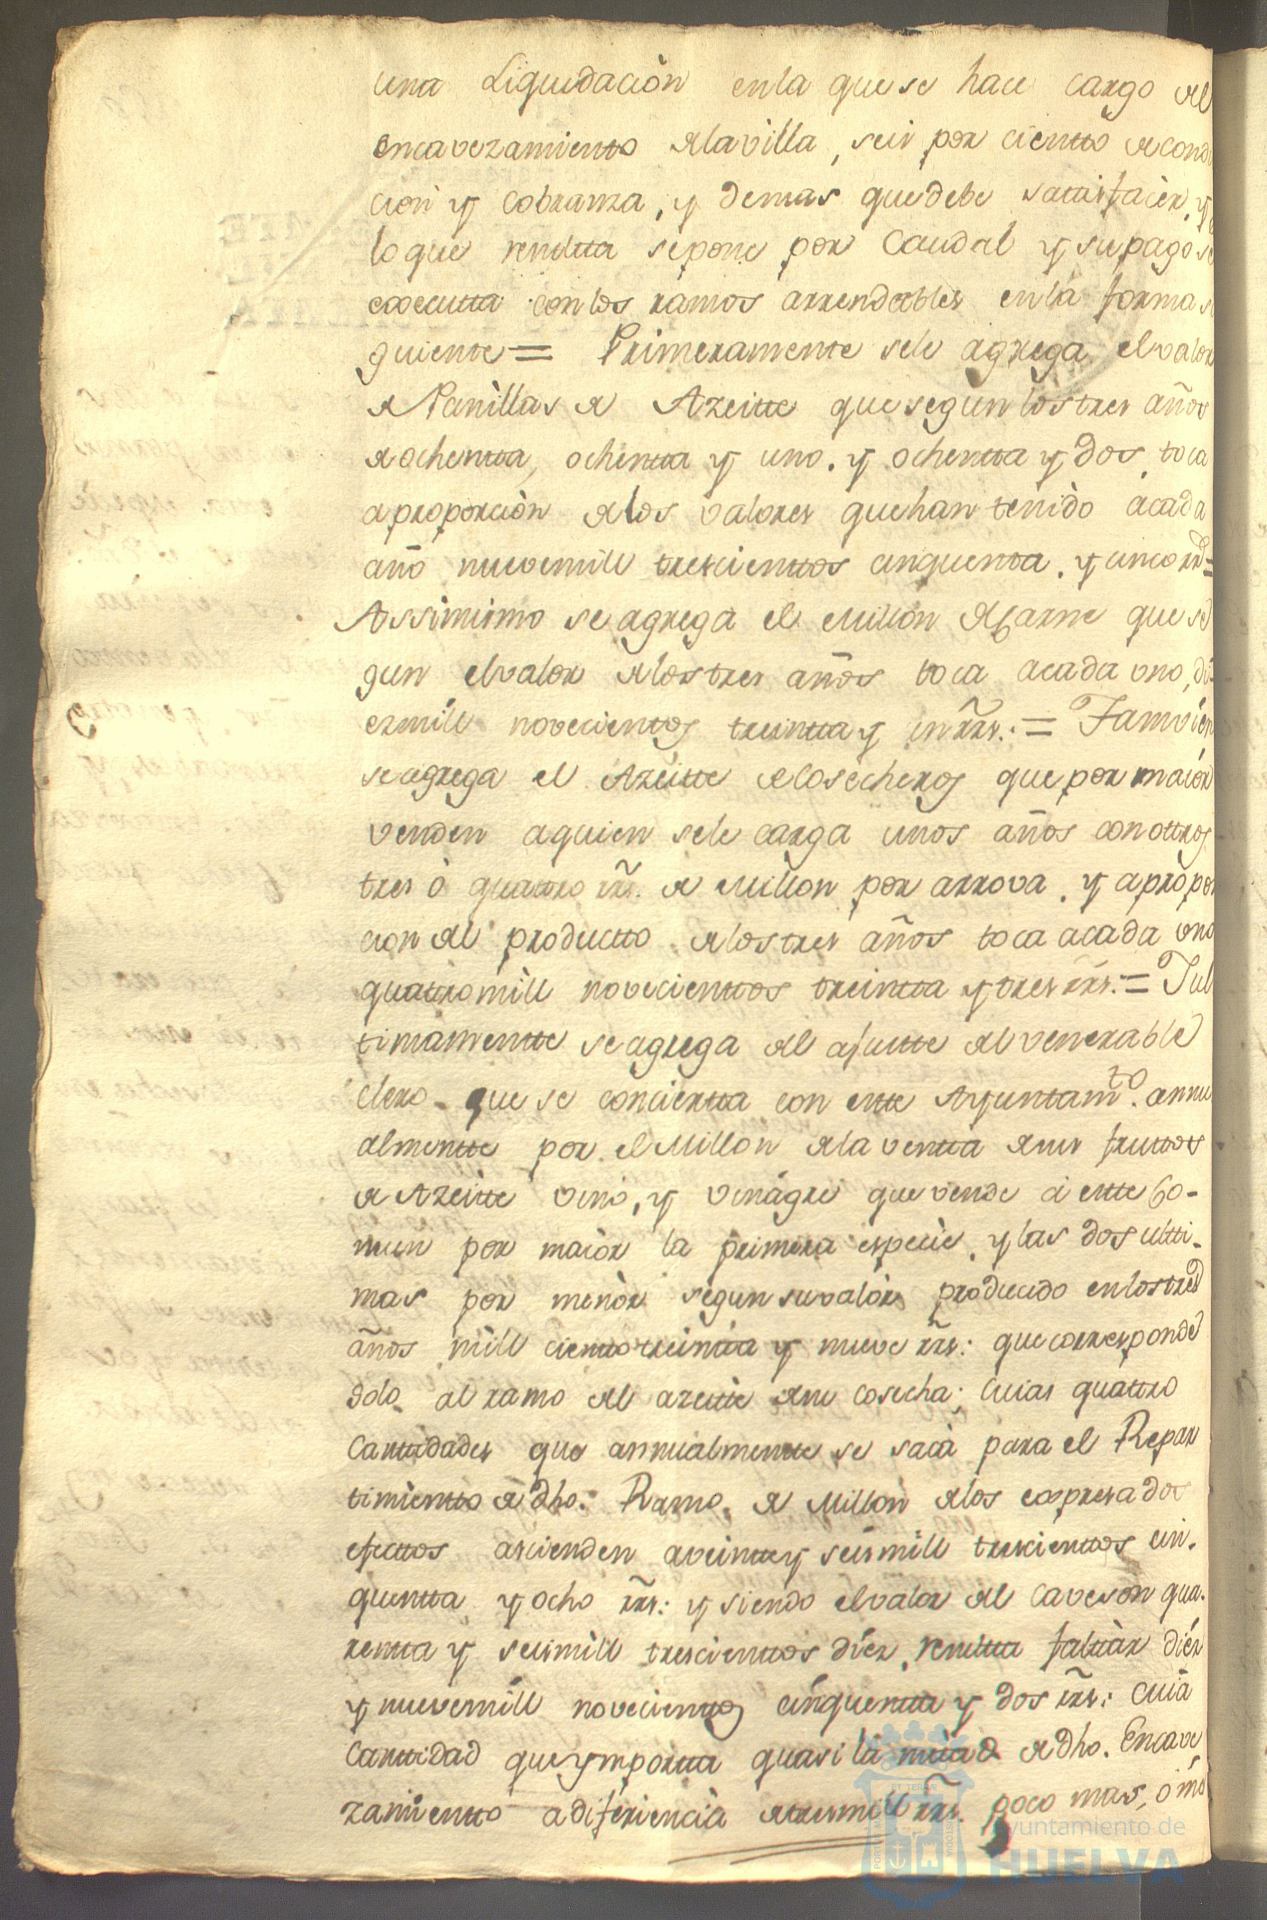 una Liquidaciòn enla que se hace cargo del
encavezamiento dela villa, seis por ciento de condu
cion y cobranza, y demas que debe satisfacer, y
lo que resulta se pone por Caudal y su pago se
executta con los ramos arrendables en la forma si
guiente = Primeramente sele agrega el valor
de Panillas de Azeitte que segun los tres años
de ochentta, ochentta y uno, y ochentta y dos, toca
a proporciòn delos valores que han tenido àcada
año nuevemill trescienttos cinquenta, y cinco rrs =
Assimismo se agrega el Millòn de Carne que se
gun el valor delos tres años toca acada uno, di-
ezmill novecientos treintta y un rrs. = Tamvien
se agrega el Azeitte de Cosecheros que por maior
venden a quien sele carga unos años con ottros
tres ò quattro rrs. de Millon por arrova, y a propor
cion del productto delos tres años toca acada uno
quattromill novecienttos treintta y tres rrs. = Y ul
timamentte se agrega el ajustte del venerable
Clero que se conciertta con estte Ayuntamto. annu
almentte por el Millon dela ventta de sus fruttos
de Azeitte vino, y vinagre que vende à estte Co-
mun por maiòr la primera especie, y las dos ultti-
mas por menòr segun su valòr producido en los tres
años mill cientto treintta y nueve rrs: que corresponde
solo al ramo del azeitte de su cosecha; Cuias quattro
Canttidades que annualmentte se sacà para el Repar
timientto de dho. Ramo, de Millon delos expresados
efecttos ascienden aveintte y seismill trescienttos cin.
quentta y ocho rrs: y siendo el valor del Caveson qua.
rentta y seismill trescienttos dièz, resultta faltàr dièz
y nuevemill novecientos cinquentta y dos rrs: cuia
Canttidad que ymportta quasi la mitad de dho. Encave
zamientto a diferiencia de tresmill rrs. poco mas, ò mo
Ayuntamiento de
HUELVA